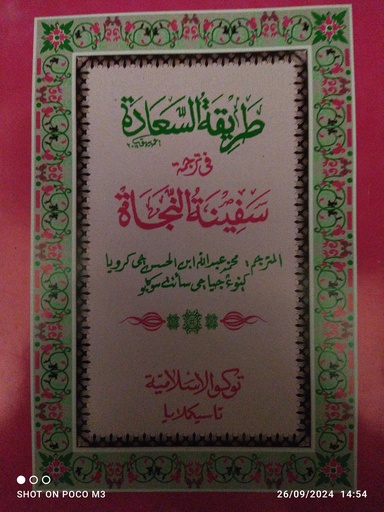 طَرِيقَةُ السَّعَادَة
فى ترجمة
سَفِيْنَةُ النَّجَاة
المترجم : محمد عبدالله ابن الحسن
توكو الاسلامية
تاسيكملايا
SHOT ON POCO M3
26/09/2024 14:54